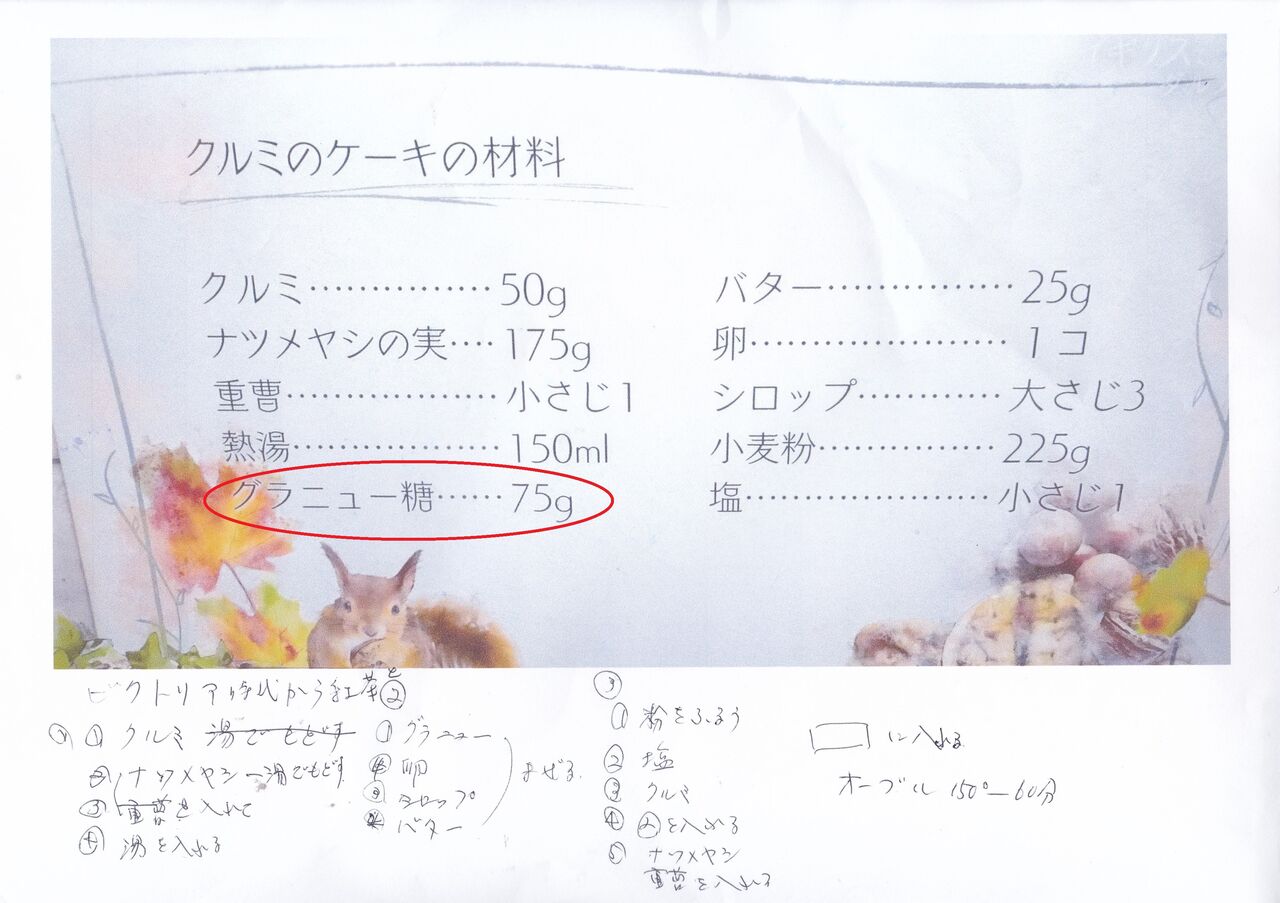 イギリス
クルミのケーキの材料
クルミ……………50g
ナツメヤシの実‥‥175g
重曹………………小さじ1
熱湯………………150ml
グラニュー糖……75g
バター……………25g
卵…………………1コ
シロップ…………大さじ3
小麦粉……………225g
塩…………………小さじ1
ビクトリア時代から紅茶と
① ① クルミ 湯でもどす
② ナツメヤシー湯でもどす
③ 重曹を入れて
④ 湯を入れる
②
① グラニュー
卵
③ シロップ
バター
まぜる
③
① 粉をふるう
② 塩
③ クルミ
④ ②を入れる
⑤ ナツメヤシ
重曹を入れる
に入れる
オーブル 150°ー60分